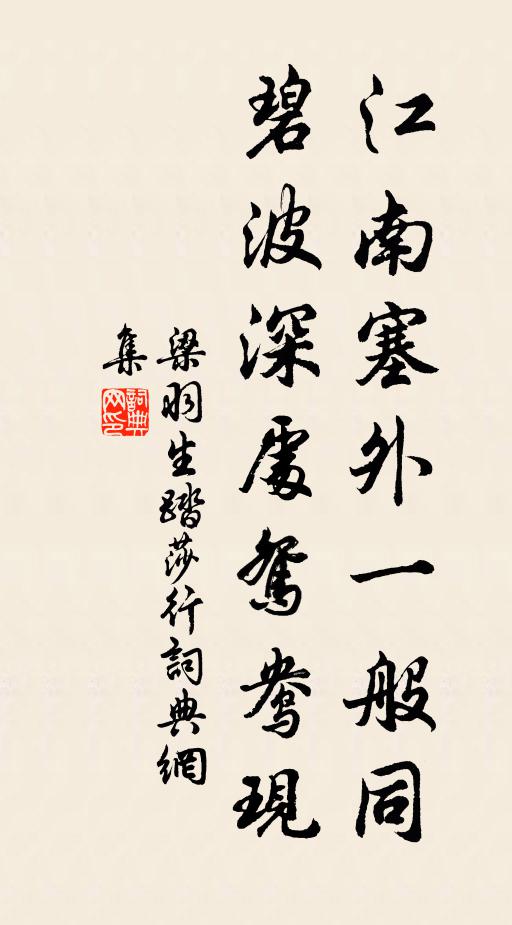 江南塞外一般同
碧波深處鴛鴦現
梁羽生踏莎行詞典網
集
詞典
网印